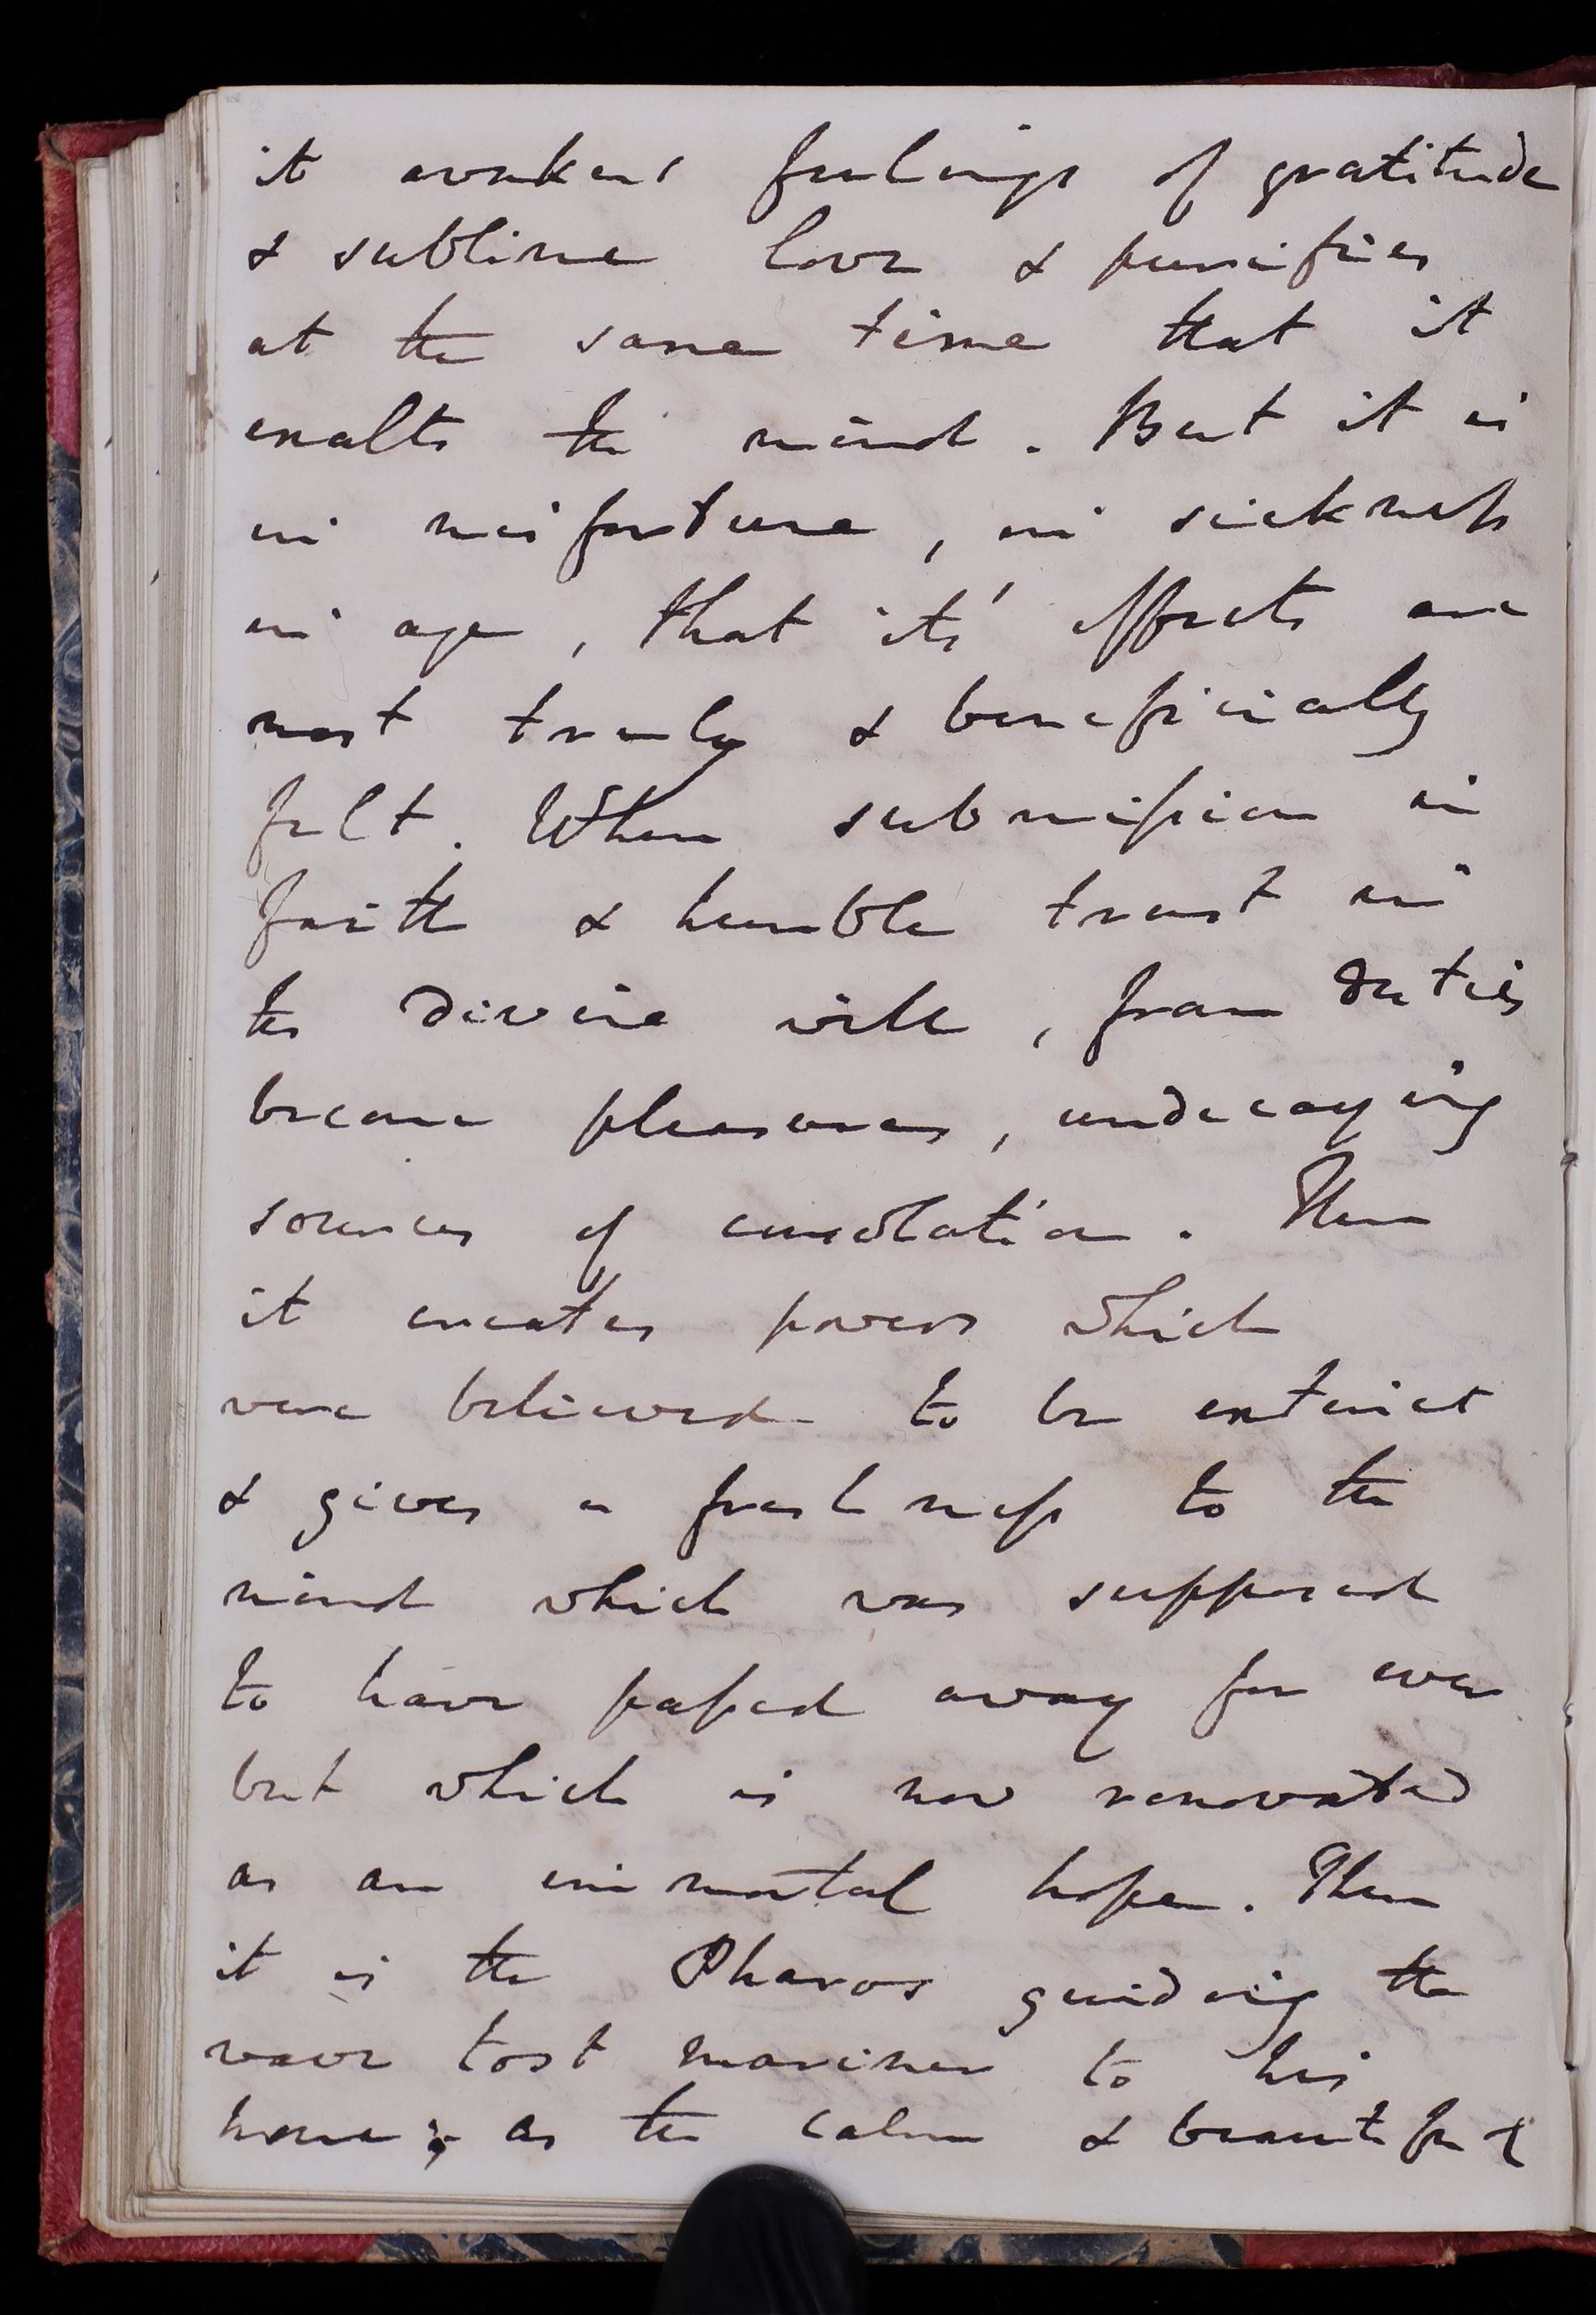 it awakens feelings of gratitude
& sublime love & purifies
at the same time that it
exalts the mind. But it is
in misfortune, in sickness
in age, that its' effects are
most truly & beneficially
felt. When submission in
faith & humble trust in
the divine will, from duties
become pleasures, undecaying
sources of consolation. Then
it creates powers which
were believed to be extinct
& gives a freshness to the
mind which was supposed
to have passed away for ever
but which is now renovated
as an immortal hope. Then
it is the Pharos guiding the
wave tost mariner to his
home; as the calm & beautiful